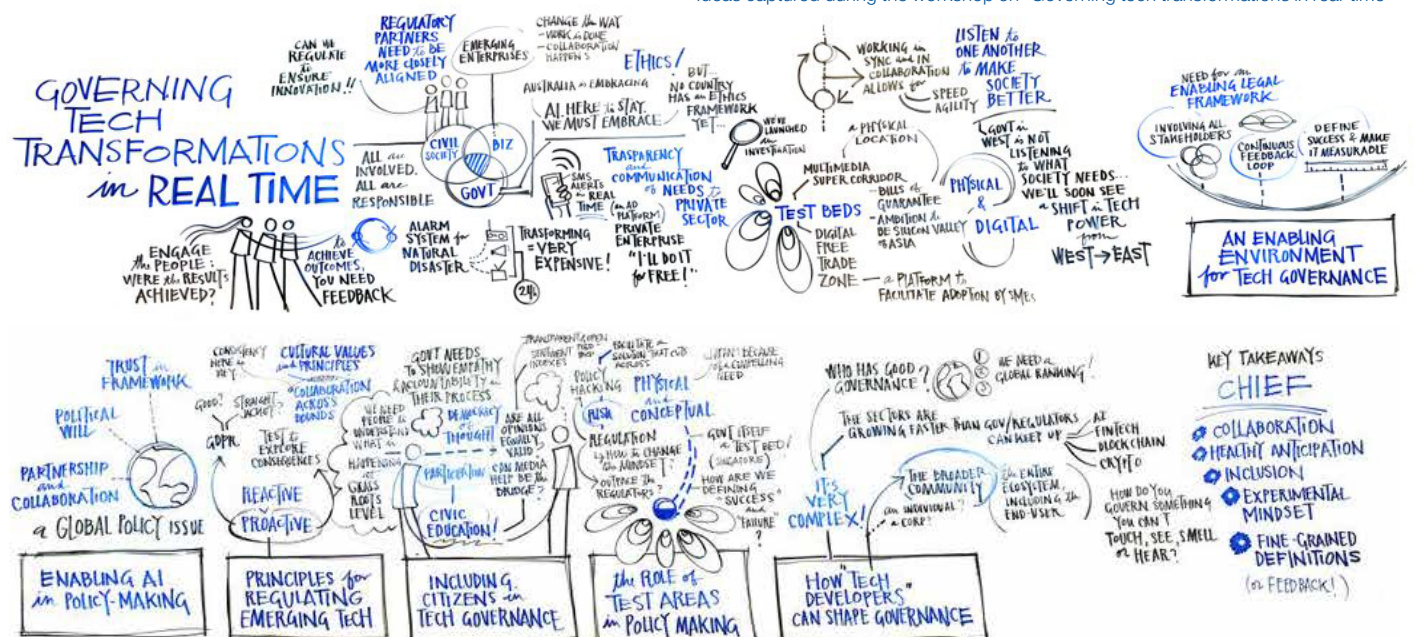 Ideas captured during the workshop on "Governing tech transformations in real time"
GOVERNING
TECH
TRANSFORMATIONS
in REAL TIME
CAN WE
REGULATE
to
ENSURE
INNOVATION!!
REGULATORY
PARTNERS
NEED to BE
MORE CLOSELY
ALIGNED
EMERGING
ENTERPRISES
CHANGE the WAY
- WORK is DONE
- COLLABORATION
HAPPENS
ETHICS!
AUSTRALIA is EMBRACING
AI HERE to STAY.
WE MUST EMBRACE
BUT...
NO COUNTRY
HAS an ETHICS
FRAMEWORK
YET...
CIVIL
SOCIETY
BIZ
GOVT
ALL are
INVOLVED.
ALL are
RESPONSIBLE
ENGAGE
the PEOPLE:
WERE the RESULTS
ACHIEVED?
to
ACHIEVE
OUTCOMES,
YOU NEED
FEEDBACK
ALARM
SYSTEM for
NATURAL
DISASTER
24h
TRASFORMING
= VERY
EXPENSIVE!
SMS
ALERTS
in REAL
TIME
TRASPARENCY
and
COMMUNICATION
of NEEDS to
PRIVATE
SECTOR
(an AD
PLATFORM)
PRIVATE
ENTERPRISE
"I'LL DO IT
for FREE!"
WE'VE
LAUNCHED
an
INVESTIGATION
WORKING in
SYNC and IN
COLLABORATION
ALLOWS for
SPEED
AGILITY
LISTEN to
ONE ANOTHER
to MAKE
SOCIETY
BETTER
a PHYSICAL
LOCATION
MULTIMEDIA
SUPER CORRIDOR
- BILLS of
GUARANTEE
- AMBITION to
BE SILICON VALLEY
of ASIA
TEST BEDS
DIGITAL
FREE
TRADE
ZONE
- a PLATFORM to
FACILITATE ADOPTION BY SMEs
PHYSICAL
&
DIGITAL
GOVT in
WEST is NOT
LISTENING
to WHAT
SOCIETY NEEDS...
WE'LL SOON SEE
a SHIFT in TECH
POWER
from
WEST → EAST
NEED for an
ENABLING LEGAL
FRAMEWORK
INVOLVING ALL
STAKEHOLDERS
CONTINUOUS
FEEDBACK
LOOP
DEFINE
SUCCESS & MAKE
IT MEASURABLE
AN ENABLING
ENVIRONMENT
for TECH GOVERNANCE
TRUST in
FRAMEWORK
POLITICAL
WILL
PARTNERSHIP
and
COLLABORATION
a GLOBAL POLICY ISSUE
ENABLING AI
in POLICY-MAKING
CONSISTENCY
HERE is
KEY
CULTURAL VALUES
and PRINCIPLES
COLLABORATION
ACROSS
BOUNDS
GOOD?
STRAIGHT
JACKET?
GDPR
TEST to
EXPLORE
CONSEQUENCES
REACTIVE
PROACTIVE
PRINCIPLES for
REGULATING
EMERGING TECH
WE NEED
PEOPLE to
UNDERSTAND
WHAT is
HAPPENING
at
GRASS
ROOTS
LEVEL
GOVT NEEDS
to SHOW EMPATHY
& ACCOUNTABILITY in
THEIR PROCESS
DEMOCRACY
of
THOUGHT!
PARTICIPATION
CIVIC
EDUCATION!
ARE ALL
OPINIONS
EQUALLY
VALID
CAN MEDIA
HELP BE the
BRIDGE?
SENTIMENT
INDEXES
INCLUDING
CITIZENS in
TECH GOVERNANCE
FACILITATE a
SOLUTION THAT CUTS
ACROSS
POLICY
HACKING
RISK
PHYSICAL
and
CONCEPTUAL
REGULATION
HOW to CHANGE
the MINDSET?
OUTPACE the
REGULATORS?
GOVT ITSELF
a TEST BED!
(SINGAPORE)
HOW ARE WE
DEFINING
"SUCCESS"
and
"FAILURE"
?
the ROLE of
TEST AREAS
in POLICY MAKING
WHO HAS GOOD
GOVERNANCE?
1
2
3
WE NEED a
GLOBAL RANKING!
THE SECTORS ARE
GROWING FASTER THAN GOV/REGULATORS
CAN KEEP UP
AI
FINTECH
BLOCKCHAIN
CRYPTO
IT'S
VERY
COMPLEX!
THE BROADER
COMMUNITY
an INDIVIDUAL?
a CORP?
the ENTIRE
ECOSYSTEM,
INCLUDING the
END-USER
HOW DO YOU
GOVERN SOMETHING
YOU CAN'T
TOUCH, SEE, SMELL
or HEAR?
HOW "TECH
DEVELOPERS"
CAN SHAPE GOVERNANCE
KEY TAKEAWAYS
CHIEF
COLLABORATION
HEALTHY ANTICIPATION
INCLUSION
EXPERIMENTAL
MINDSET
FINE-GRAINED
DEFINITIONS
(or FEEDBACK!)